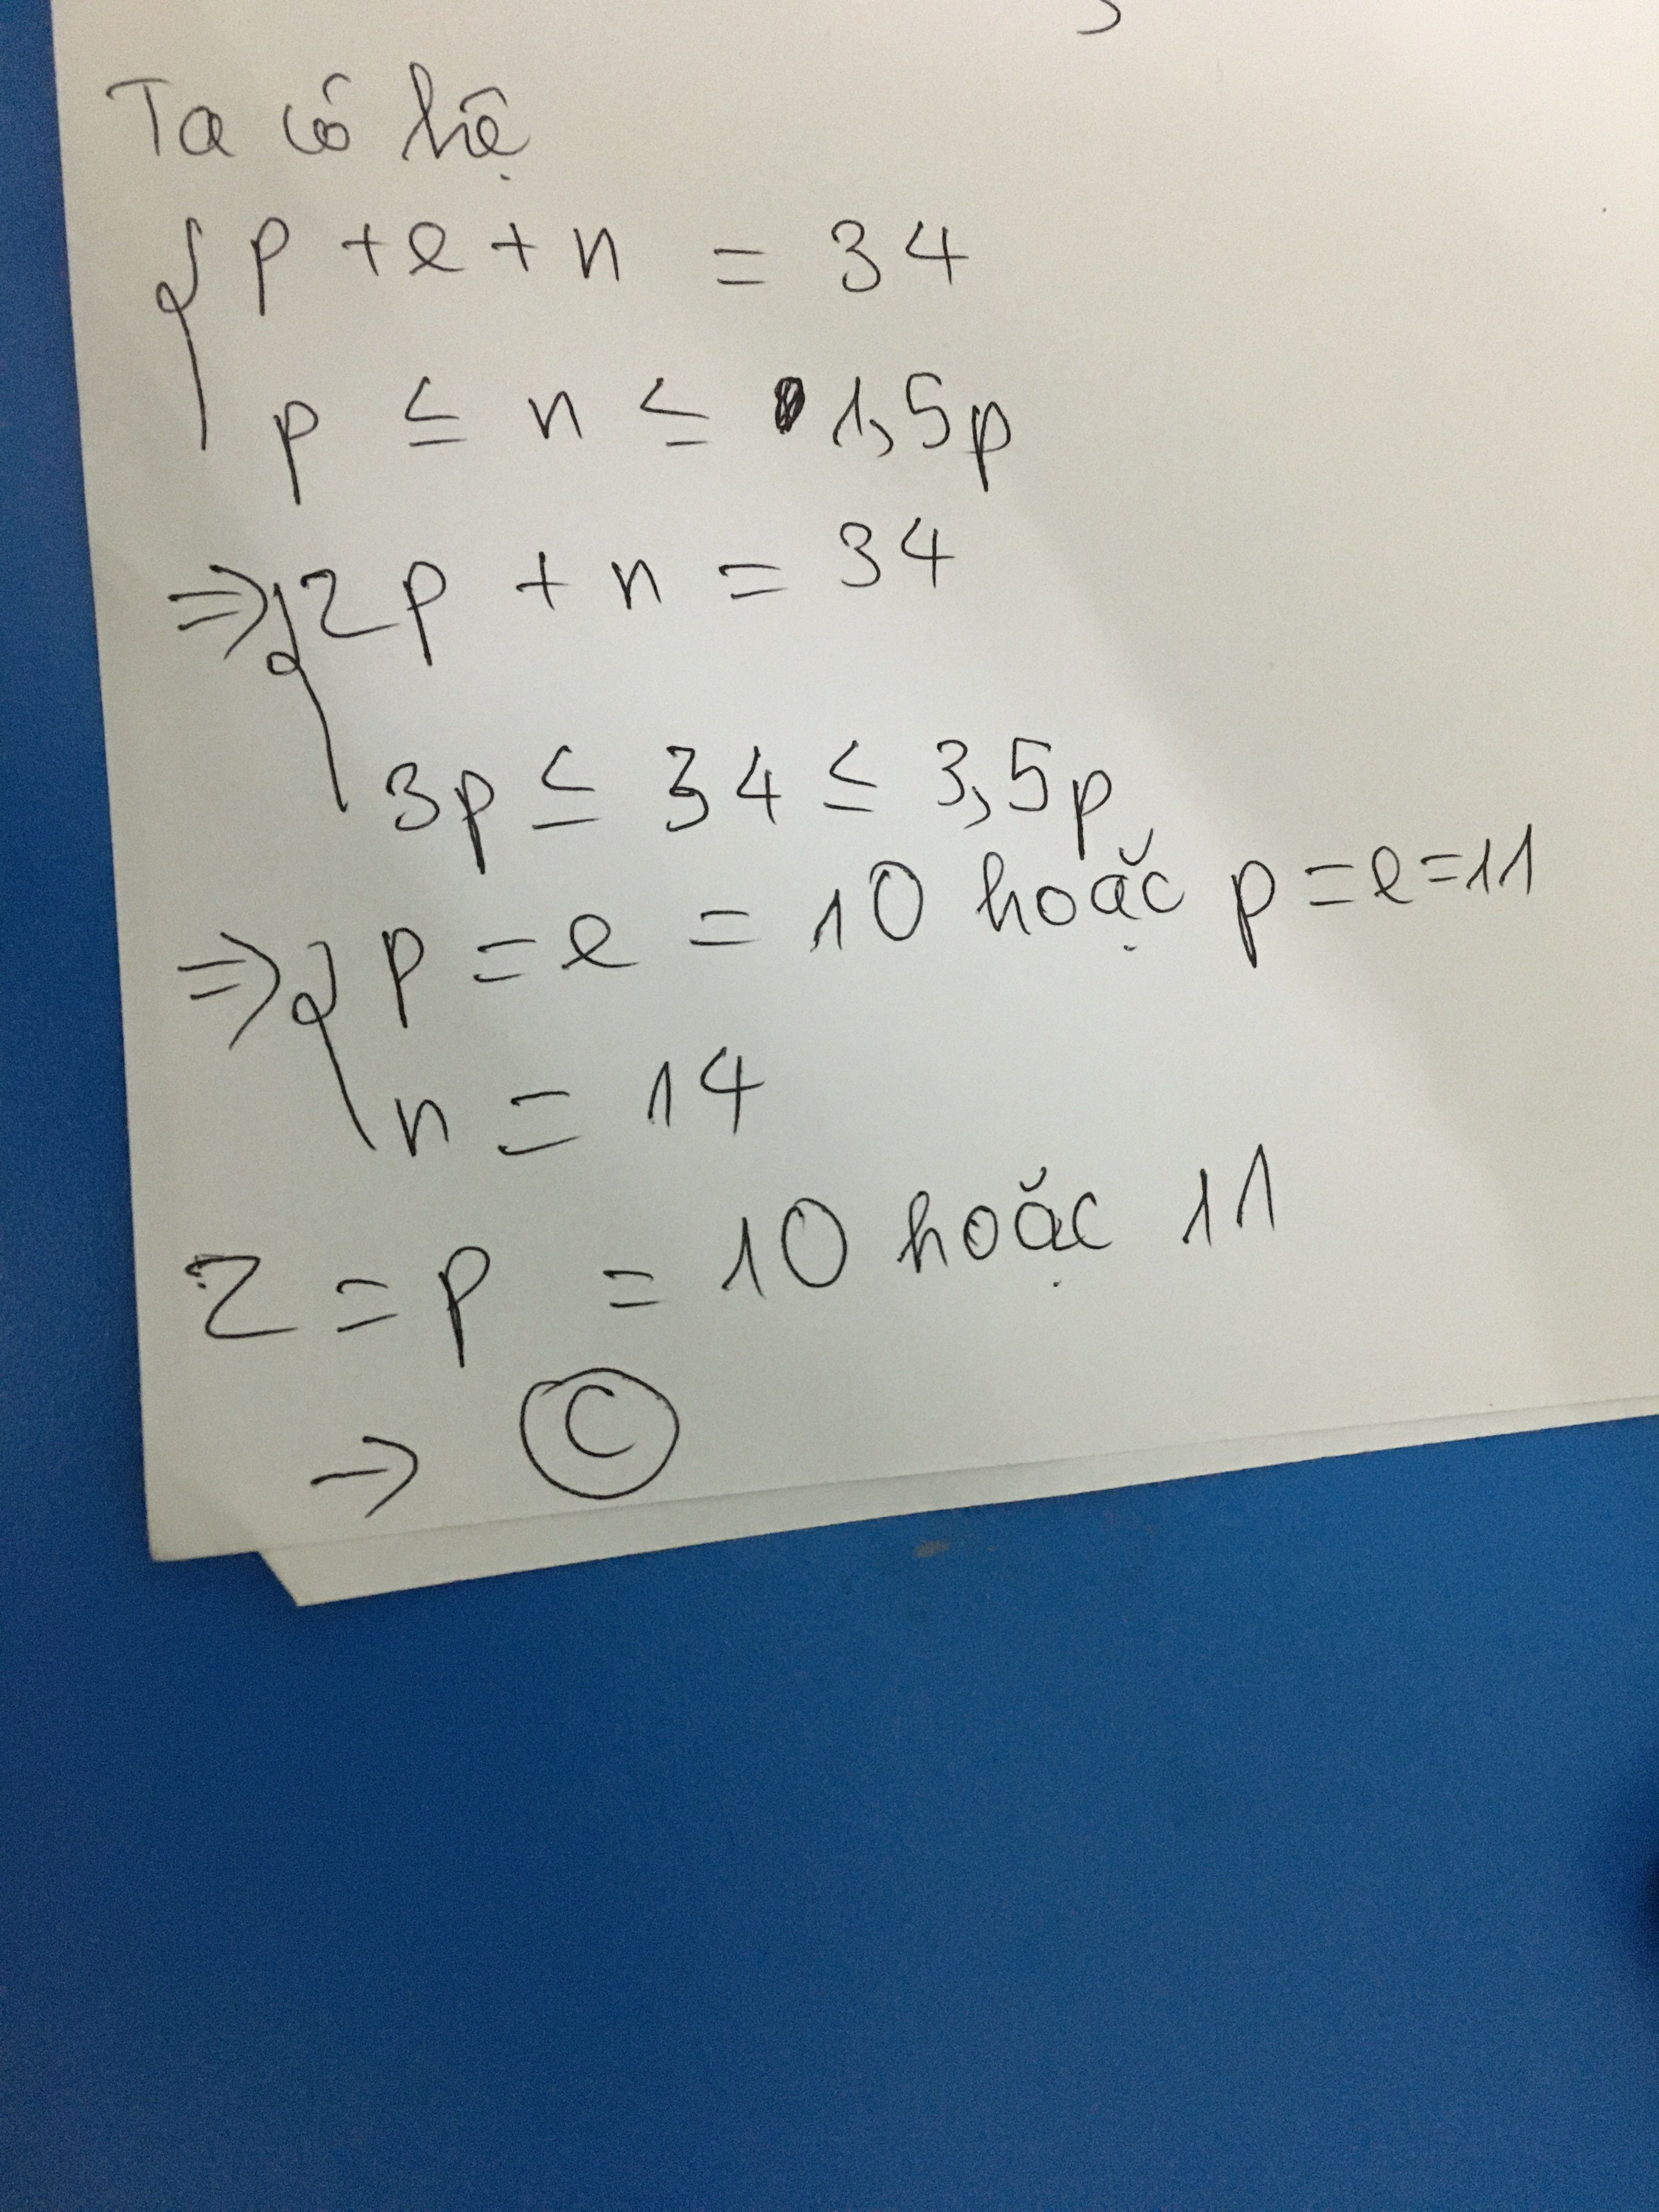 Ta có hệ
{ p + e + n = 34
p ≤ n ≤ 1,5p
⇒ { 2p + n = 34
3p ≤ 34 ≤ 3,5p
⇒ { p = e = 10 hoặc p = e = 11
n = 14
Z = p = 10 hoặc 11
→ C